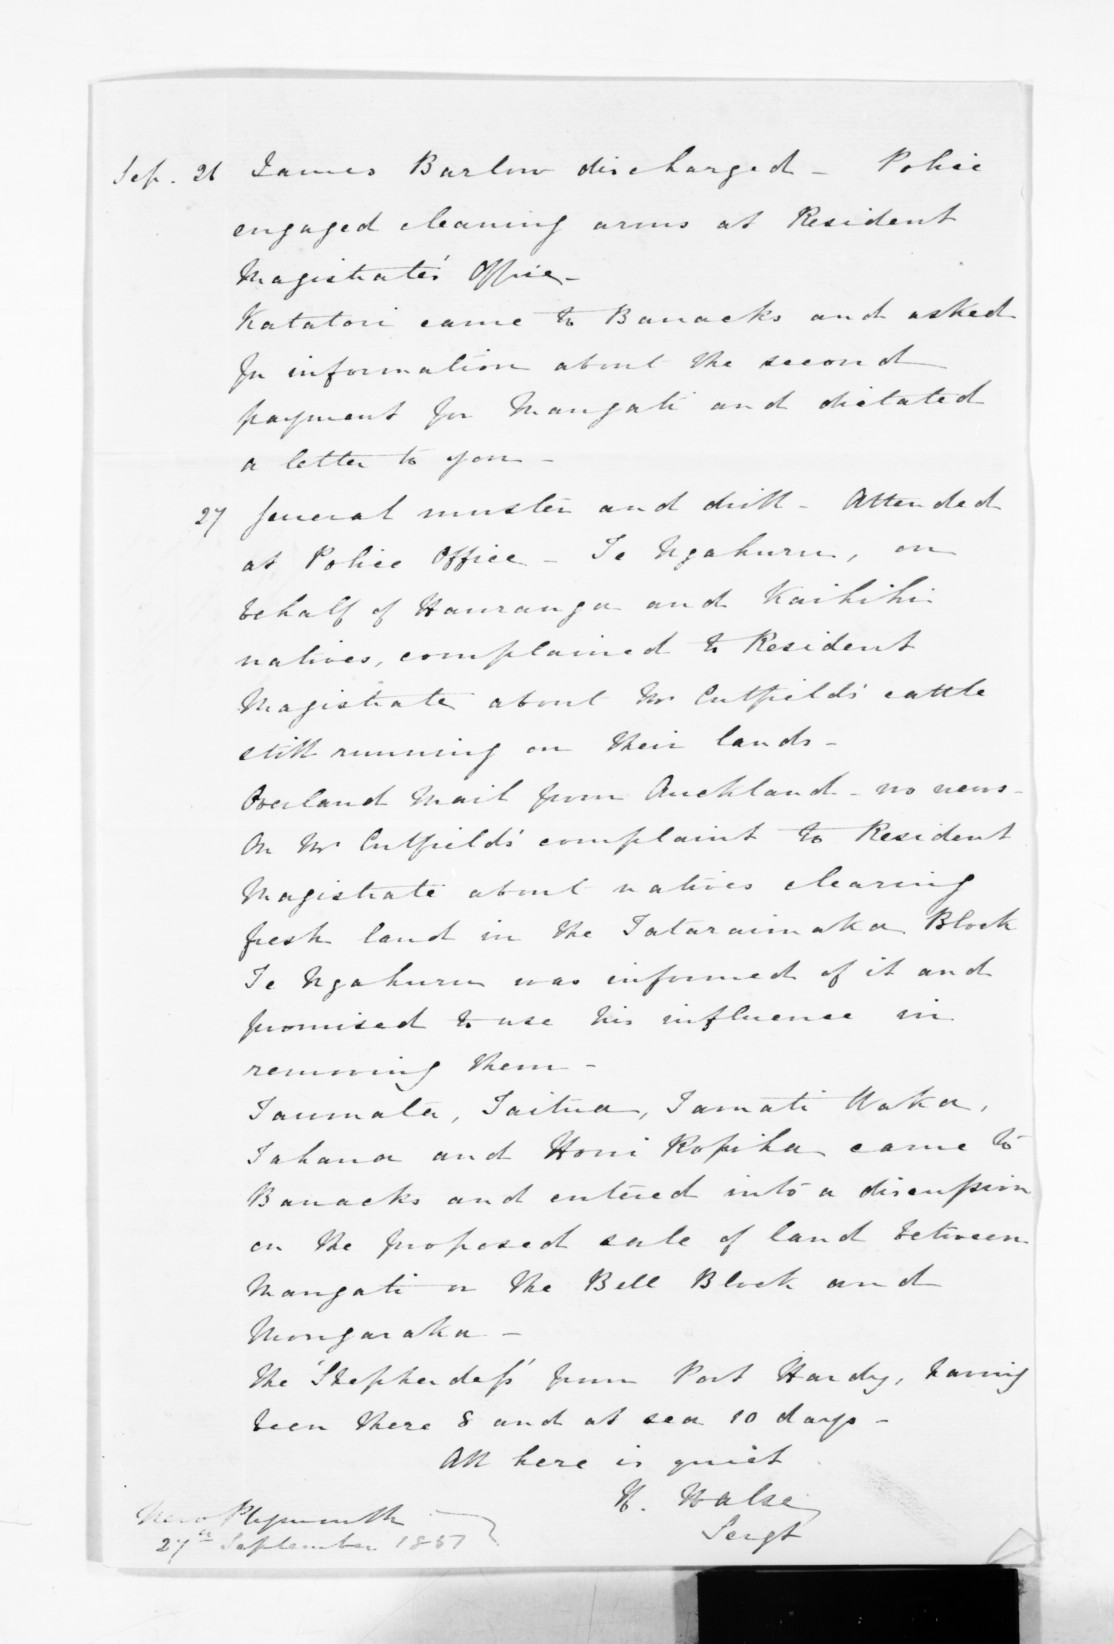 Sep. 26 James Barlow discharged - Police
engaged cleaning arms at Resident
Magistrate's Office -
Katatori came to Barracks and asked
for information about the second
payment for Mangati and dictated
a letter to you -
27 General muster and drill - Attended
at Police Office - Te Ngahuru, on
behalf of Hauranga and Kaihihi
natives, complained to Resident
Magistrate about Mr Cutfield's cattle
still running on their lands -
Overland Mail from Auckland - no news -
On Mr Cutfield's complaint to Resident
Magistrate about natives clearing
fresh land in the Tataraimaka Block
Te Ngahuru was informed of it and
promised to use his influence in
removing them -
Taumata, Taitua, Tamati Waka,
Tahana and Honi Ropiha came to
Barracks and entered into a discussion
on the proposed sale of land between
Mangati or the Bell Block and
Mongaraka -
The 'Shepherdess' from Port Hardy, having
been there 8 and at sea 10 days -
All here is quiet
H. Halse
Sergt
New Plymouth
27th September 1851